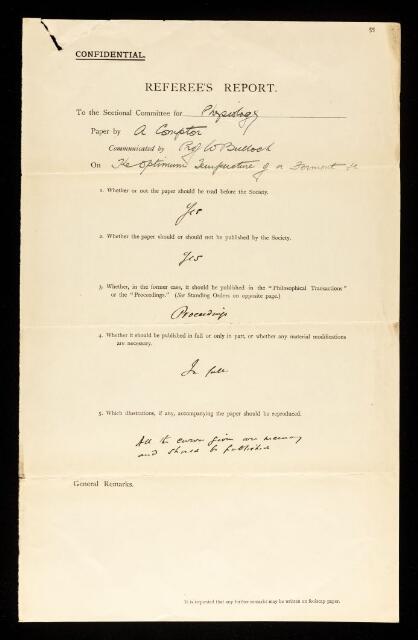 55
CONFIDENTIAL.
REFEREE'S REPORT.
To the Sectional Committee for Physiology
Paper by A Compton
Communicated by Prof W Bulloch
On The Optimum Temperature of a Ferment &c
1. Whether or not the paper should be read before the Society.
Yes
2. Whether the paper should or should not be published by the Society.
Yes
3. Whether, in the former case, it should be published in the "Philosophical Transactions"
or the "Proceedings." (See Standing Orders on opposite page.)
Proceedings
4. Whether it should be published in full or only in part, or whether any material modifications
are necessary.
In full
5. Which illustrations, if any, accompanying the paper should be reproduced.
All the curves given are necessary
and should be published
General Remarks.
It is requested that any further remarks may be written on foolscap paper.